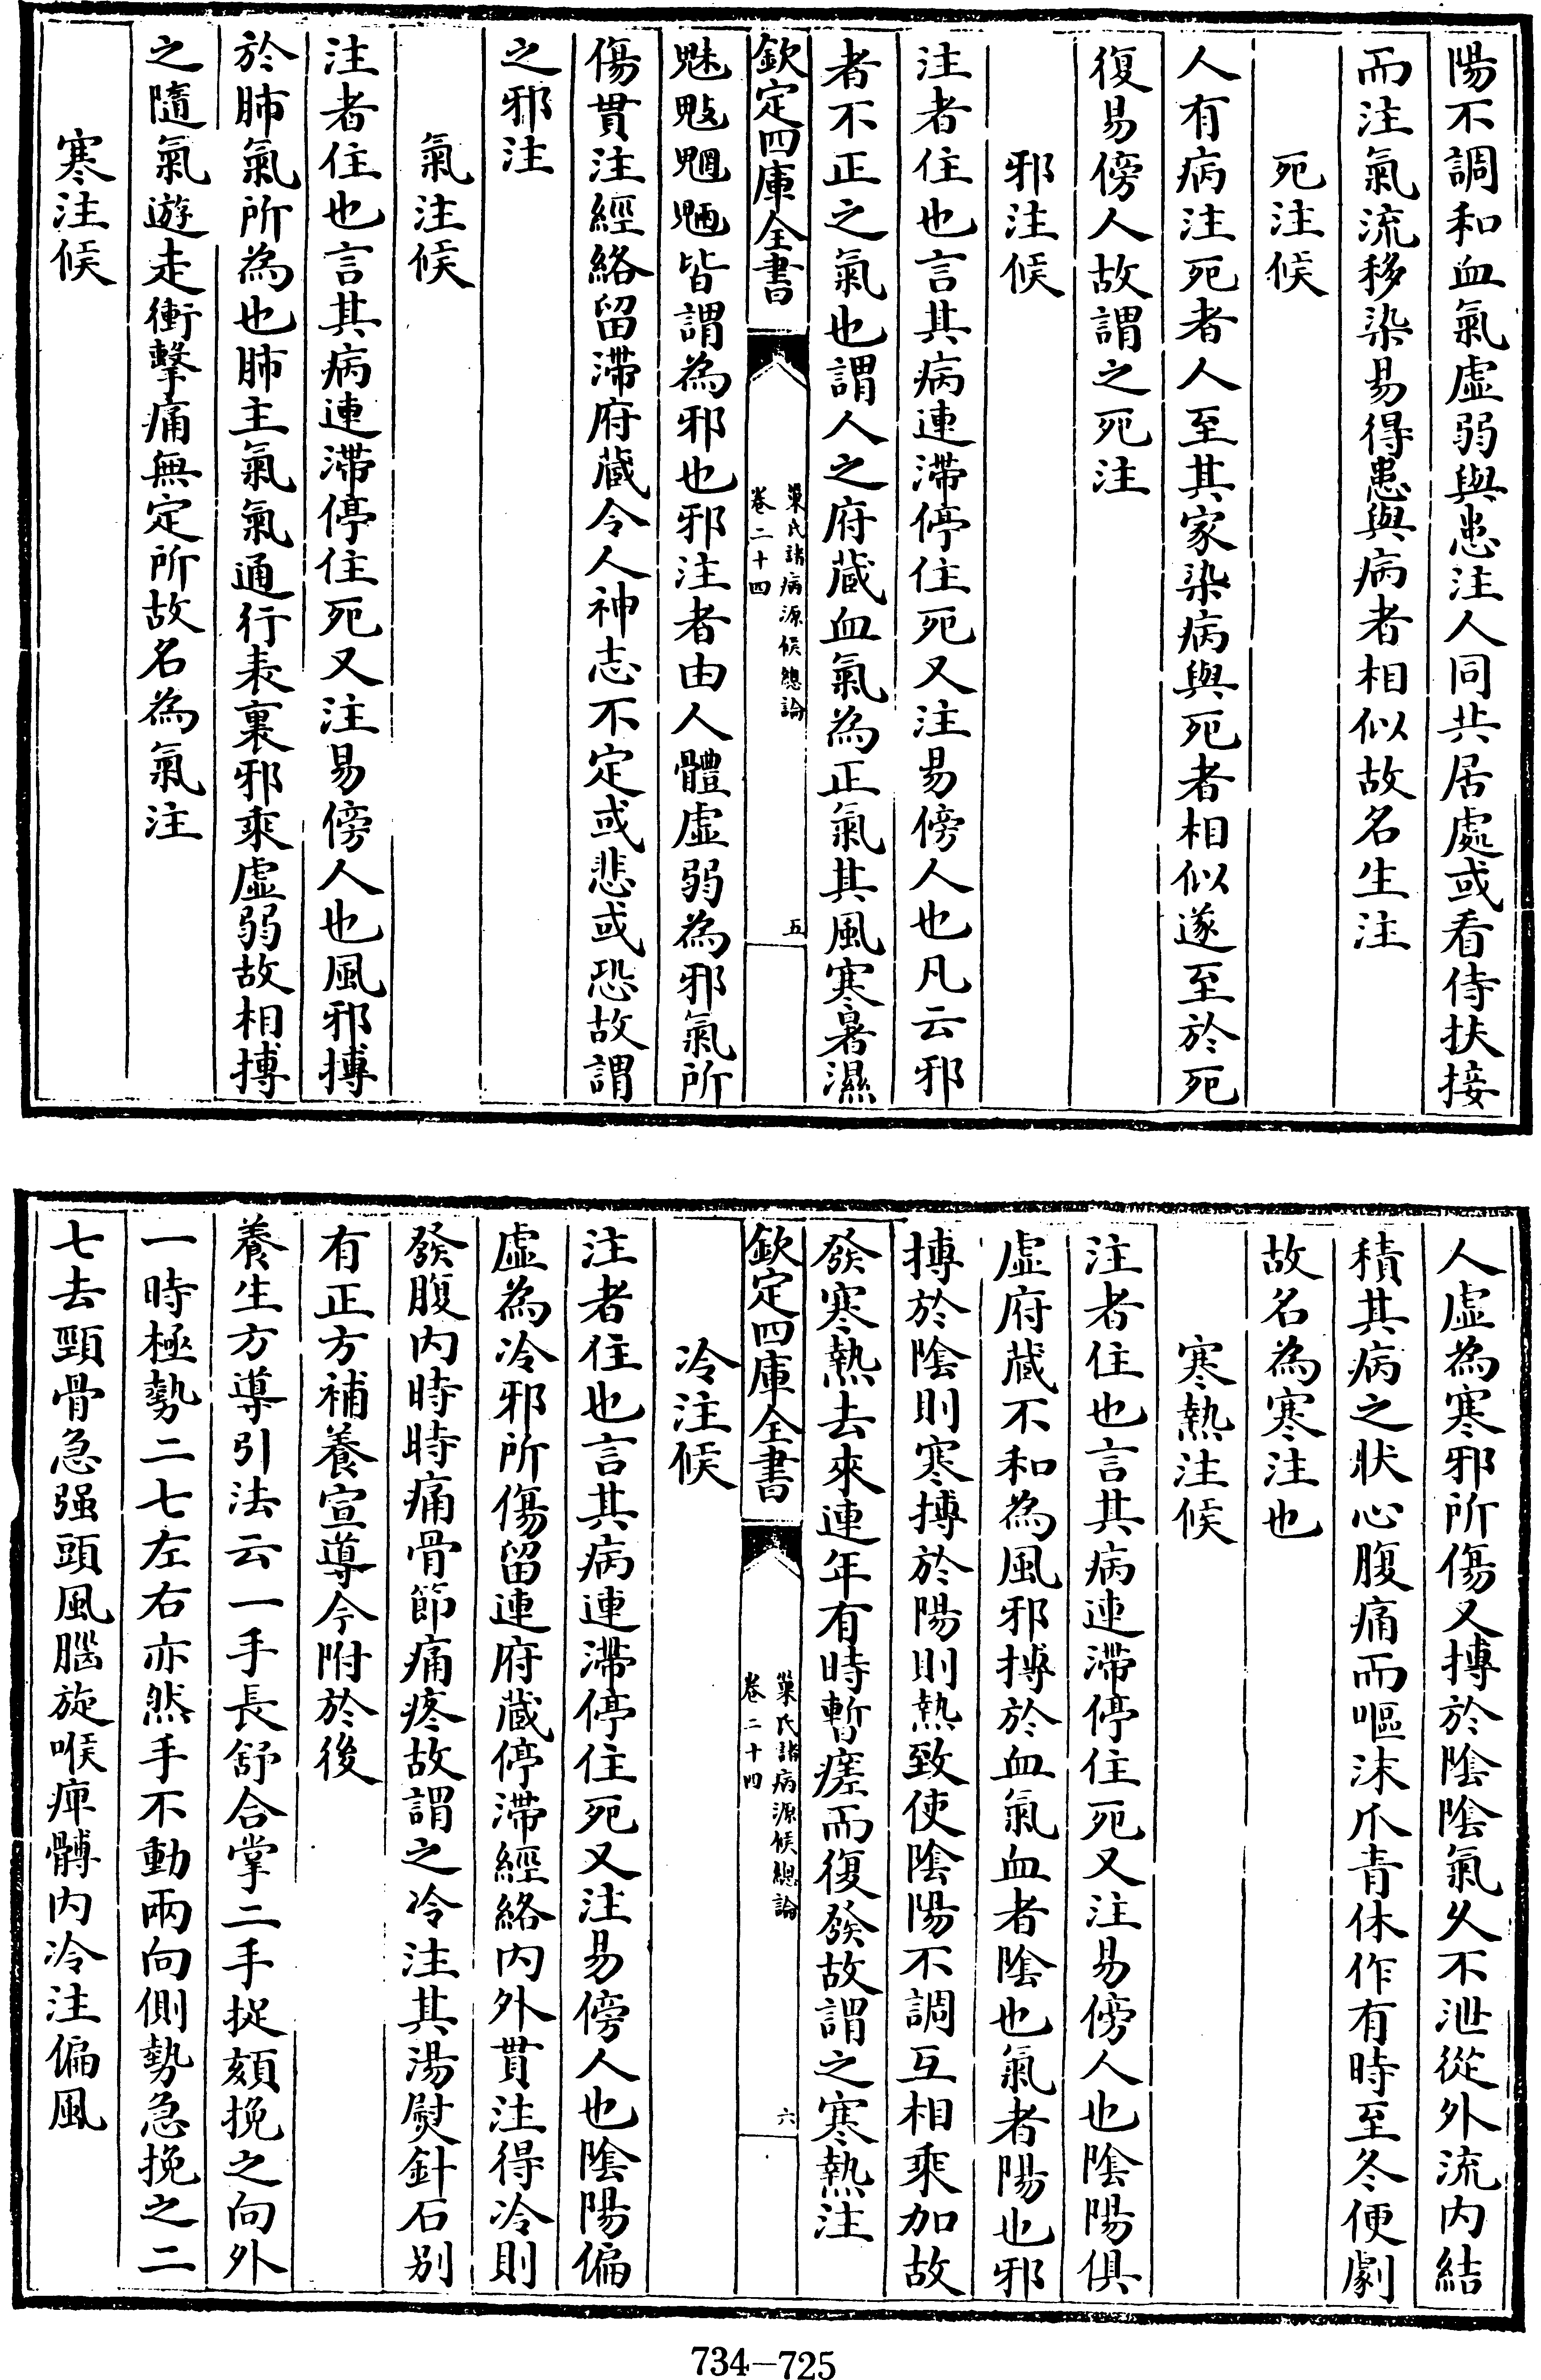 陽不調和血氣虛弱與患注人同共居處或看侍扶接
而注氣流移染易得患與病者相似故名生注
死注候
人有病注死者人至其家染病與死者相似遂至於死
復易傍人故謂之死注
邪注候
注者住也言其病連滯停住死又注易傍人也凡云邪
者不正之氣也謂人之府藏血氣為正氣其風寒暑濕
欽定四庫全書
巢氏諸病源候總論
卷二十四
五
魅魃魍魎皆謂為邪也邪注者由人體虛弱為邪氣所
傷貫注經絡留滯府藏令人神志不定或悲或恐故謂
之邪注
氣注候
注者住也言其病連滯停住死又注易傍人也風邪搏
於肺氣所為也肺主氣氣通行表裏邪乘虛弱故相搏
之隨氣遊走衝擊痛無定所故名為氣注
寒注候
人虛為寒邪所傷又搏於陰陰氣久不泄從外流內結
積其病之狀心腹痛而嘔沫爪青休作有時至冬便劇
故名為寒注也
寒熱注候
注者住也言其病連滯停住死又注易傍人也陰陽俱
虛府藏不和為風邪搏於血氣血者陰也氣者陽也邪
搏於陰則寒搏於陽則熱致使陰陽不調互相乘加故
發寒熱去來連年有時暫瘥而復發故謂之寒熱注
欽定四庫全書
巢氏諸病源候總論
卷二十四
六
冷注候
注者住也言其病連滯停住死又注易傍人也陰陽偏
虛為冷邪所傷留連府藏停滯經絡內外貫注得冷則
發腹內時時痛骨節痛疼故謂之冷注其湯熨針石別
有正方補養宣導今附於後
養生方導引法云一手長舒合掌二手捉頦挽之向外
一時極勢二七左右亦然手不動兩向側勢急挽之二
七去頸骨急强頭風腦旋喉痺髆內冷注偏風
734-725